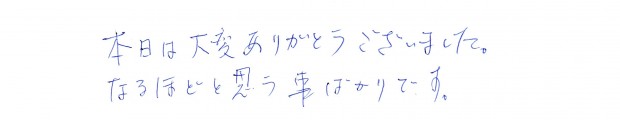 本日は大変ありがとうございました。
なるほどと思う事ばかりです。